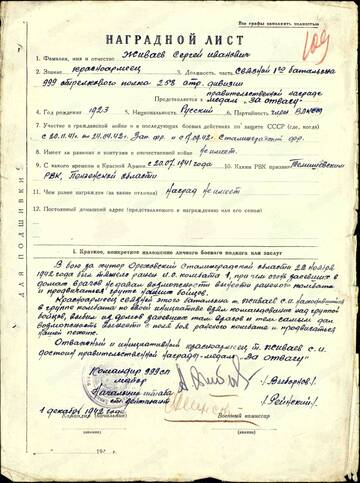 Все графы заполнять полностью
НАГРАДНОЙ ЛИСТ
1. Фамилия, имя и отчество Живаев Сергей Иванович
2. Звание красноармеец 3. Должность, часть связной 1го батальона
999 стрелкового полка 258 стр. дивизии
правительственной награде
Представляется к медаль „За отвагу“
4. Год рождения 1923 5. Национальность Русский 6. Партийность член ВЛКСМ
7. Участие в гражданской войне и в последующих боевых действиях по защите СССР (где, когда)
8. Имеет ли ранения и контузии в отечественной войне не имеет
9. С какого времени в Красной Армии с 20.07.1941 года 10. Каким РВК призван
РВК, Пензенской области
11. Чем ранее награжден (за какие отличия) наград не имеет
12. Постоянный домашний адрес (представляемого к награждению или его семьи)
ДЛЯ ПОДШИВКИ
I. Краткое, конкретное изложение личного боевого подвига или заслуг
В бою за хутор Ореховский Сталинградской области 22 ноября
1942 года был тяжело ранен и.о. комбата 1, при чем огонь засевших в
домах врагов не давал возможности вынести раненого комбата
и продвигаться группе наших бойцов.
Красноармеец связной этого батальона т. Живаев с.и. находившийся
в группе комбата по своей инициативе взял командование над группой
бойцов, выбил из домов засевших там врагов и тем самым дал
возможность вынести с поля боя раненого комбата и продвигаться
нашей пехоте.
Отважный и инициативный красноармеец т. Живаев с.и.
достоин правительственной награды - медаль „За отвагу“
Командир 999 сп
майор
Начальник штаба
ст. лейтенант
1 декабря 1942 года
Командир (начальник)
Военный комиссар
(звание)
(звание)